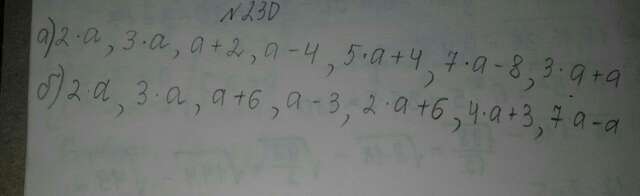 №230
а) 2·a, 3·a, a+2, a-4, 5·a+4, 7·a-8, 3·a+a
б) 2·a, 3·a, a+6, a-3, 2·a+6, 4·a+3, 7·a-a